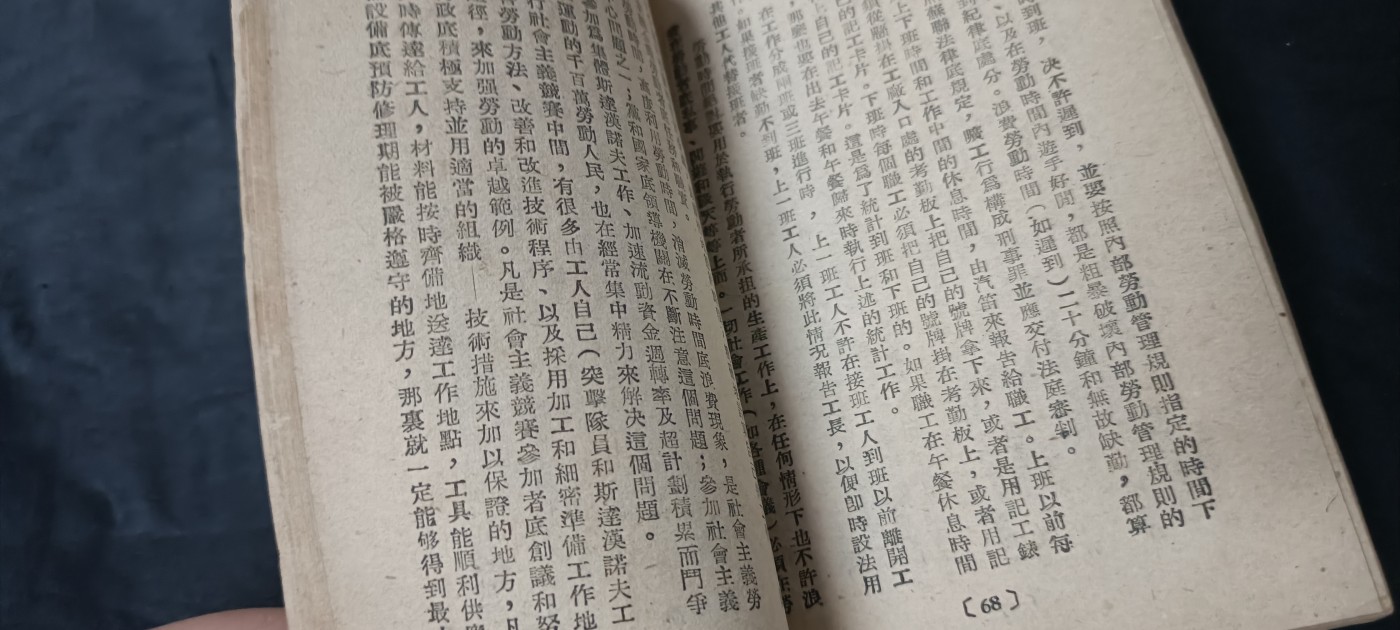 到班，決不許遲到，並要按照內部勞動管理規則指定的時間下
、以及在勞動時間內遊手好閒，都是粗暴破壞內部勞動管理規則的
紀律底處分。浪費勞動時間（如遲到）二十分鐘和無故缺勤，都算
蘇聯法律底規定，曠工行爲構成刑事罪並應交付法庭審判。
上下班時間和工作中間的休息時間，由汽笛來報告給職工。上班以前每
須從懸掛在工廠入口處的考勤板上把自己的號牌拿下來，或者是用記工錶
的記工卡片。下班時每個職工必須把自己的號牌掛在考勤板上，或者用記
上自己的記工卡片。還是爲了統計到班和下班的。如果職工在午餐休息時間
，那麽也要在出去午餐和午餐歸來時執行上述的統計工作。
在工作分成兩班或三班進行時，上一班工人不許在接班工人到班以前離開工
如果接班者缺勤不到班，上一班工人必須將此情況報告工長，以便卽時設法用
其他工人代替接班者。
勞動時間應用於執行勞動者所承担的生產工作上，在任何情形下也不許浪
高度利用勞動時間，消滅勞動時間底浪費現象，是社會主義勞
心問題之一；黨和國家底領導機關在不斷注意這個問題；參加社會主義
參加爲集體斯達漢諾夫工作、加速流動資金週轉率及超計劃積累而鬥爭
運動的千百萬勞動人民，也在經常集中精力來解決這個問題。
社會主義競賽中間，有很多由工人自己（突擊隊員和斯達漢諾夫工
勞動方法、改善和改進技術程序、以及採用加工和細密準備工作地
徑，來加强勞動的卓越範例。凡是社會主義競賽參加者底創議和努
政底積極支持並用適當的組織——技術措施來加以保證的地方，凡
時傳達給工人，材料能按時齊備地送達工作地點，工具能順利供
設備底預防修理期能被嚴格遵守的地方，那裏就一定能够得到最
〔68〕